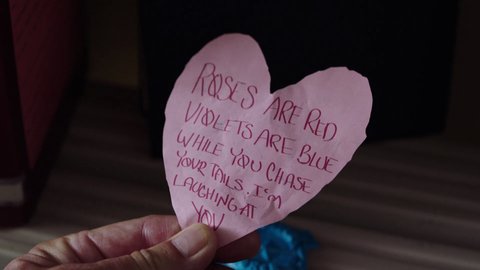 ROSES ARE RED
VIOLETS ARE BLUE
WHILE YOU CHASE
YOUR TAILS. I'M
LAUGHING AT
YOU